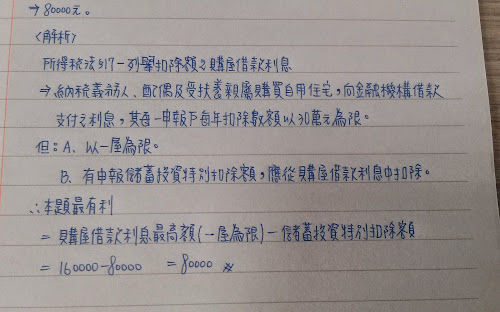 →80000元。
<解析>
所得稅法§17-列舉扣除額之購屋借款利息
→納稅義務人、配偶及受扶養親屬購買自用住宅,向金融機構借款
支付之利息,其每一申報戶每年扣除數額以30萬元為限。
但:A、以一屋為限。
B、有申報儲蓄投資特別扣除額,應從購屋借款利息中扣除。
∴本題最有利
=購屋借款利息最高額(一屋為限)-儲蓄投資特別扣除額
=160000-80000 =80000